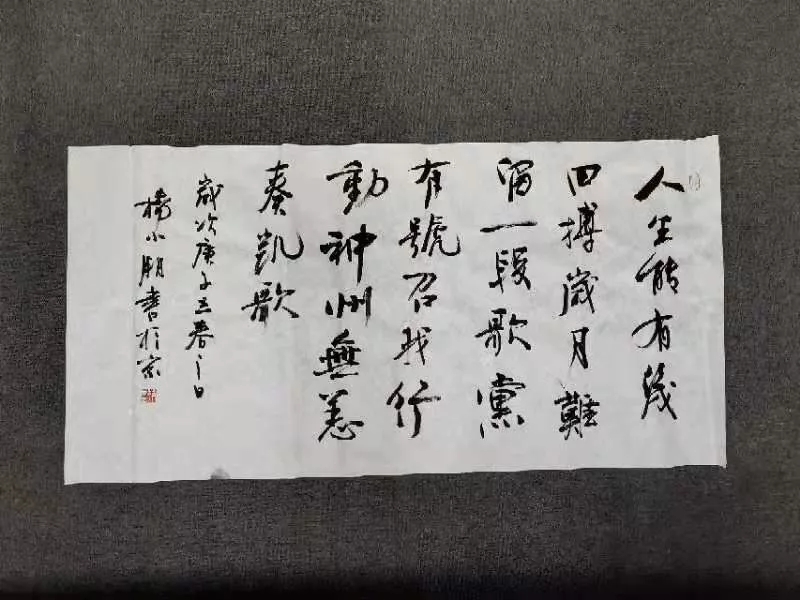 人生能有幾
回搏歲月難
留一段歌黨
有號召我行
動神州無恙
奏凱歌
歲次庚子立春之日
楊小朋書於京